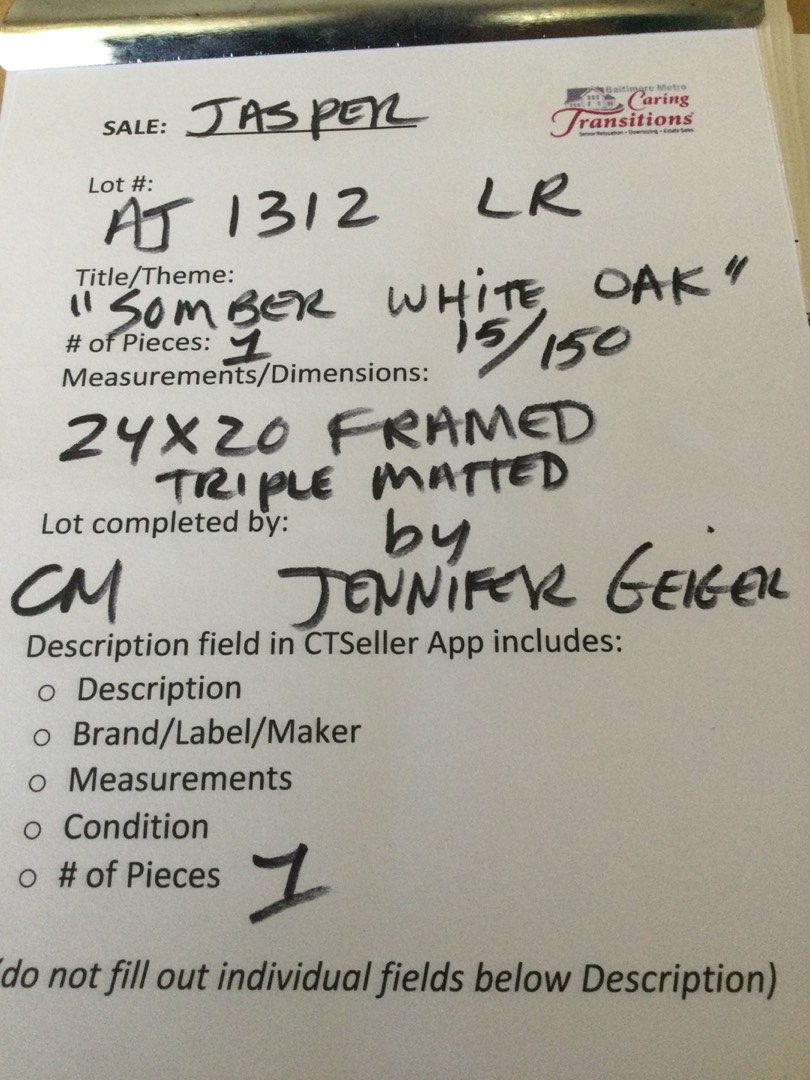 SALE: JASPER
Baltimore Metro
Caring
Transitions
Senior Relocation • Downsizing • Estate Sales
Lot #:
AJ 1312 LR
Title/Theme:
"SOMBER WHITE OAK"
# of Pieces: 1 15/150
Measurements/Dimensions:
24X20 FRAMED
TRIPLE MATTED
Lot completed by: by
CM JENNIFER GEIGER
Description field in CTSeller App includes:
o Description
o Brand/Label/Maker
o Measurements
o Condition
o # of Pieces 1
(do not fill out individual fields below Description)